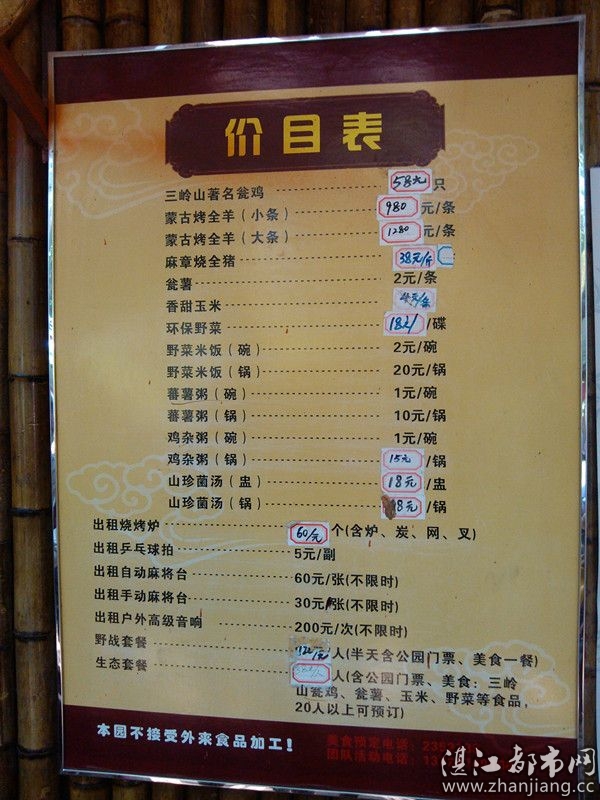 价目表
三岭山著名瓮鸡 58元 只
蒙古烤全羊（小条） 980 元/条
蒙古烤全羊（大条） 1280 元/条
麻章烧全猪 38元/斤
瓮薯 2元/条
香甜玉米 元/条
环保野菜 18元/ /碟
野菜米饭（碗） 2元/碗
野菜米饭（锅） 20元/锅
蕃薯粥（碗） 1元/碗
蕃薯粥（锅） 10元/锅
鸡杂粥（碗） 1元/碗
鸡杂粥（锅） 15元 /锅
山珍菌汤（盅） 18元 /盅
山珍菌汤（锅） 8元 /锅
出租烧烤炉 60/元 个(含炉、炭、网、叉)
出租乒乓球拍 5元/副
出租自动麻将台 60元/张(不限时)
出租手动麻将台 30元/张(不限时)
出租户外高级音响 200元/次(不限时)
野战套餐 人(半天含公园门票、美食一餐)
生态套餐 人(含公园门票、美食：三岭
山瓮鸡、瓮薯、玉米、野菜等食品，
20人以上可预订)
本园不接受外来食品加工！
美食预定电话：23
团队活动电话：13
湛江都市网
www.zhanjiang.cc